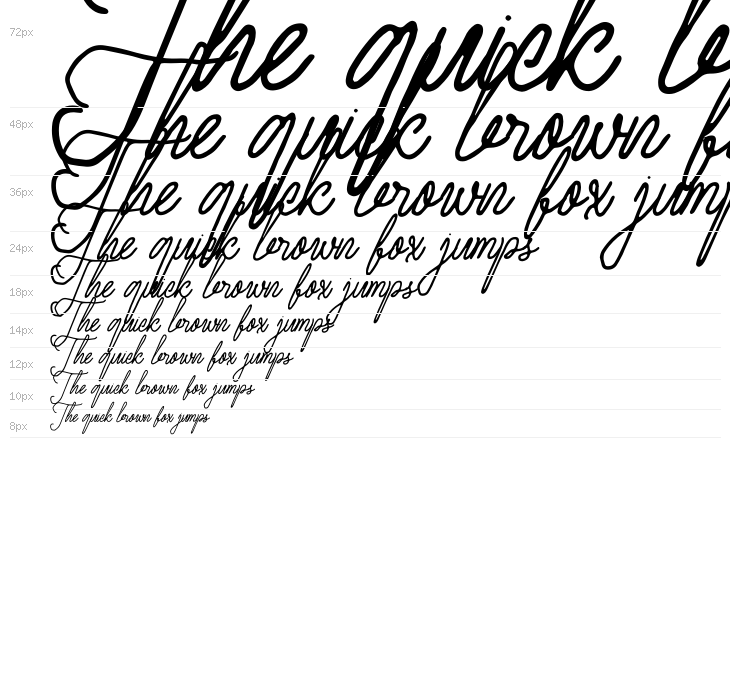 72px The quick
48px The quick brown
36px The quick brown fox jump
24px The quick brown fox jumps
18px The quick brown fox jumps
14px The quick brown fox jumps
12px The quick brown fox jumps
10px The quick brown fox jumps
8px The quick brown fox jumps